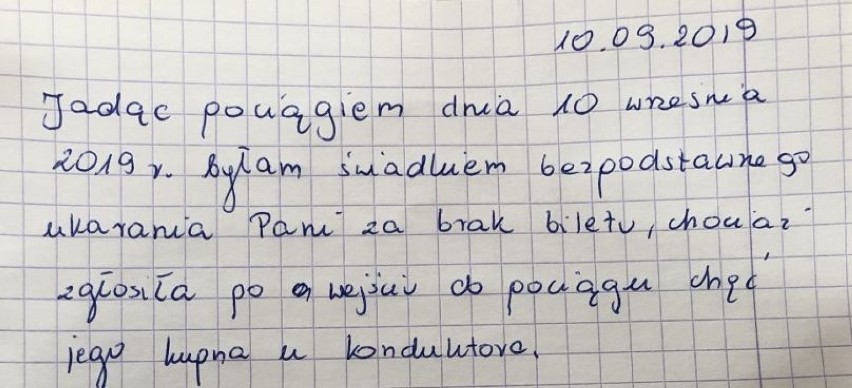 10.09.2019
Jadąc pociągiem dnia 10 wrzesnia
2019 r. byłam świadkiem bezpodstawnego
ukarania Pani za brak biletu, chociaż
zgłosiła po wejściu do pociągu chęć
jego kupna u konduktora.